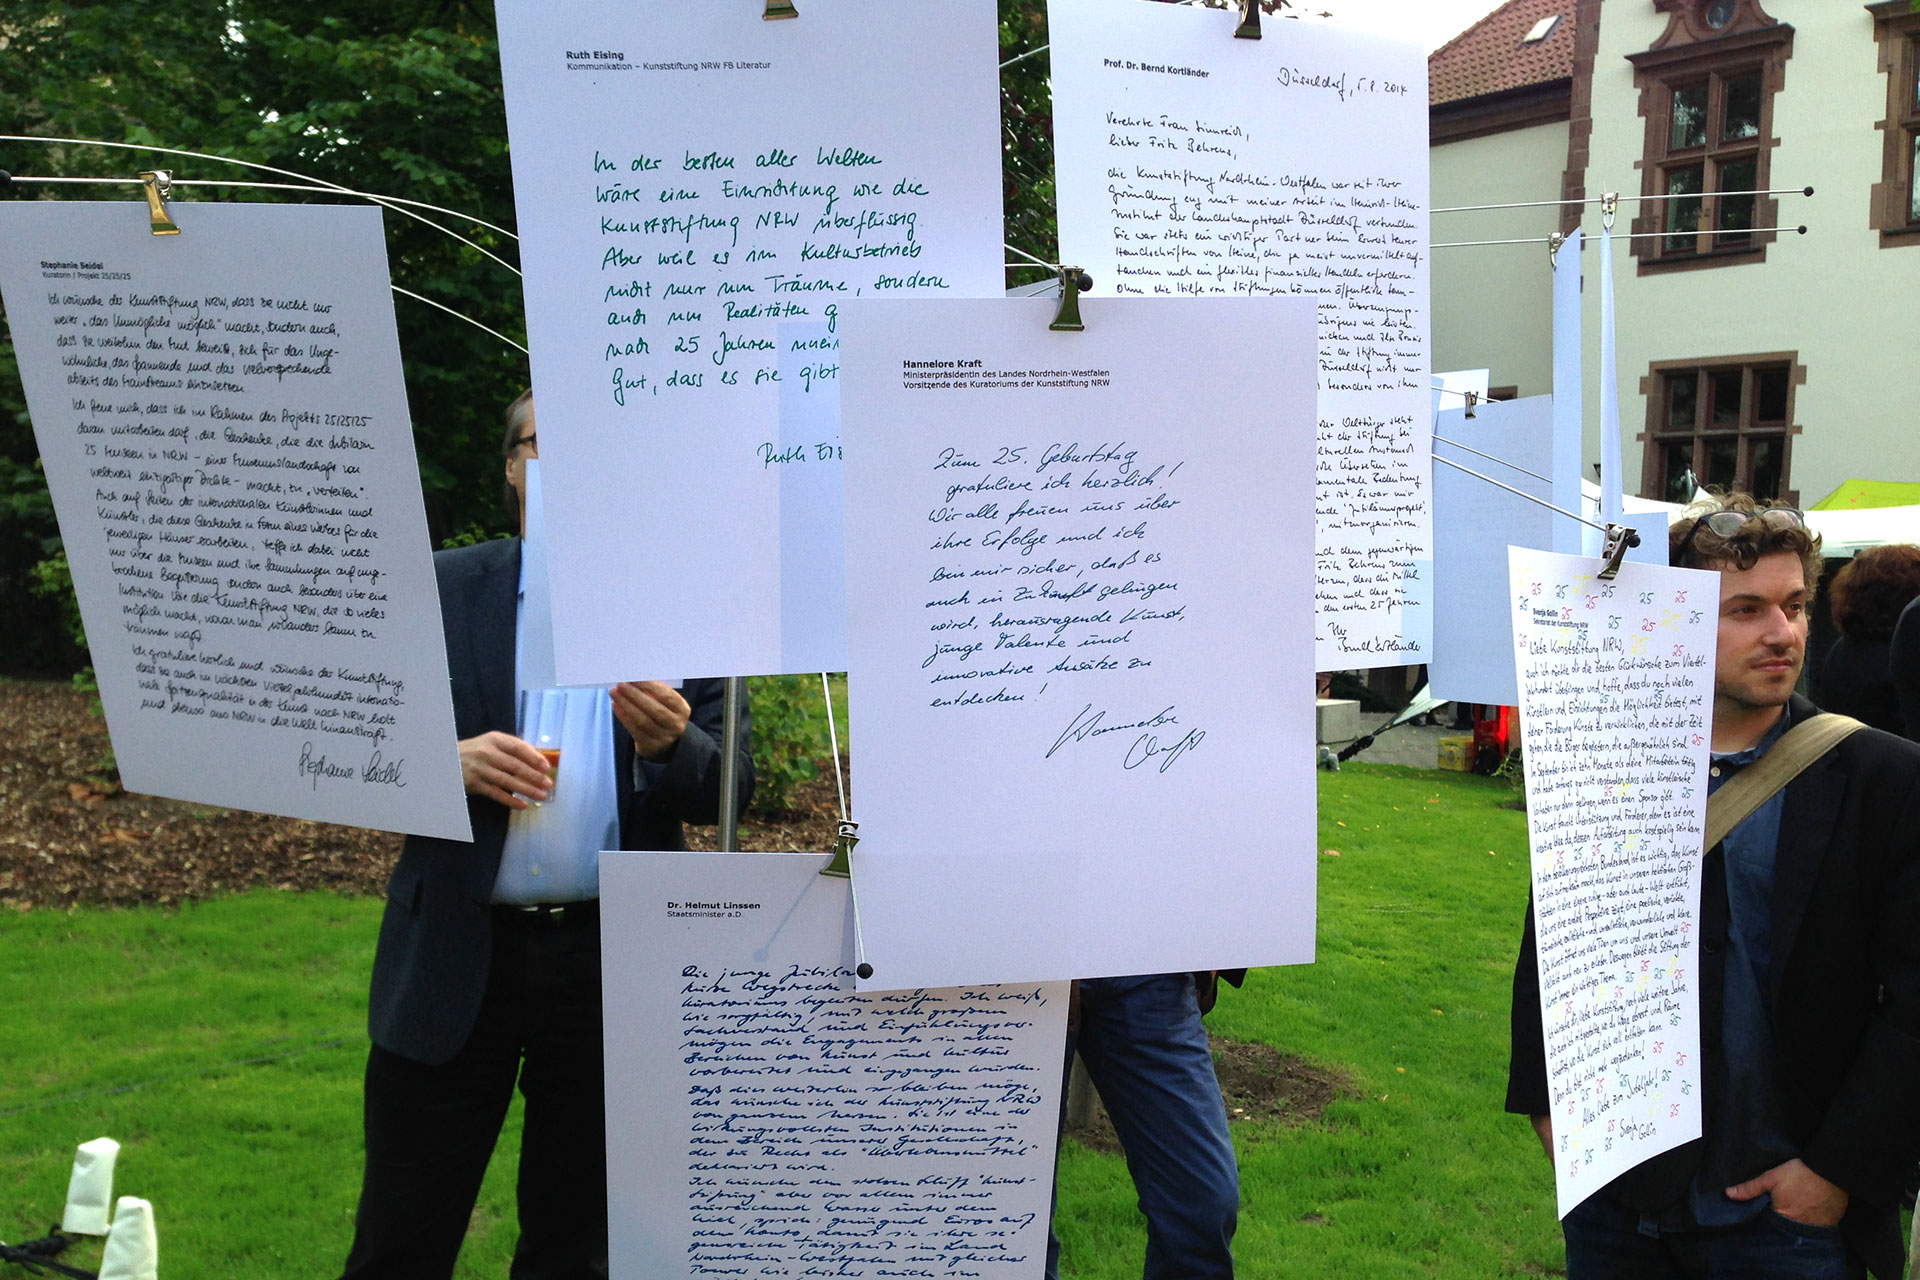 Stephanie Seidel
Kuratorin / Projekt 25/25/25
Ich wünsche der Kunststiftung NRW, dass sie nicht nur
weiter „das Unmögliche möglich" macht, sondern auch,
dass sie weiterhin den Mut beweist, sich für das Unge-
wöhnliche, das Spannende und das Vielversprechende
abseits des Mainstreams einzusetzen.
Ich freue mich, dass ich im Rahmen des Projekts 25/25/25
daran mitarbeiten darf, die Geschenke, die die Jubilarin
25 Museen in NRW – einer Museumslandschaft von
weltweit einzigartiger Dichte – macht, zu „verteilen".
Auch auf Seiten der internationalen Künstlerinnen und
Künstler, die diese Geschenke in Form eines Werkes für die
jeweiligen Häuser erarbeiten, treffe ich dabei nicht
nur über die Museen und ihre Sammlungen auf unge-
brochene Begeisterung sondern auch besonders über eine
Institution wie die Kunststiftung NRW, die so vieles
möglich macht, woran man woanders kaum zu
träumen wagt.
Ich gratuliere herzlich und wünsche der Kunststiftung,
dass sie auch im nächsten Vierteljahrhundert internatio-
nale Spitzenqualität in der Kunst nach NRW holt
und ebenso aus NRW in die Welt hinausträgt.
Stephanie Seidel
Ruth Eising
Kommunikation – Kunststiftung NRW FB Literatur
In der besten aller Welten
wäre eine Einrichtung wie die
Kunststiftung NRW überflüssig.
Aber weil es im Kulturbetrieb
nicht nur um Träume, sondern
auch um Realitäten g
nach 25 Jahren
Gut, dass es sie gibt
Ruth Eis
Prof. Dr. Bernd Kortländer
Düsseldorf, 5.8.2014
Verehrte Frau Sinnreich,
lieber Fritz Behrens,
die Kunststiftung Nordrhein-Westfalen war seit ihrer
Gründung eng mit meiner Arbeit im Heinrich-Heine-
Institut der Landeshauptstadt Düsseldorf verbunden.
Sie war stets ein wichtiger Partner beim Erwerb teurer
Handschriften von Heine, die ja meist unvermittelt auf-
tauchen und ein flexibles finanzielles Handeln erfordern.
Ohne die Hilfe von Stiftungen können öffentliche
Überzeugungs-
übrigens nie leisten.
in der Stiftung immer
Düsseldorf nicht nur
besonders von ihm
der Stiftung bei
kulturellen Austausch
Übersetzen im
Bedeutung
ist. Es war mir
Jubiläumsprojekt,
mitzuorganisieren.
und dem gegenwärtigen
Fritz Behrens zum
Herzen, dass die Mittel
und dass sie
den ersten 25 Jahren
Ihr
Bernd Kortländer
Hannelore Kraft
Ministerpräsidentin des Landes Nordrhein-Westfalen
Vorsitzende des Kuratoriums der Kunststiftung NRW
Zum 25. Geburtstag
gratuliere ich herzlich!
Wir alle freuen uns über
ihre Erfolge und ich
bin mir sicher, daß es
auch in Zukunft gelingen
wird, herausragende Kunst,
junge Talente und
innovative Ansätze zu
entdecken!
Hannelore
Kraft
Dr. Helmut Linssen
Staatsminister a.D.
Die junge Jubila
kurze Wegstrecke
Kuratoriums begleiten dürfen. Ich weiß,
wie sorgfältig, mit welch großem
Sachverstand und Einfühlungsver-
mögen die Engagements in allen
Bereichen von Kunst und Kultur
vorbereitet und eingegangen wurden.
Daß dies weiterhin so bleiben möge,
das wünsche ich der Kunststiftung NRW
von ganzem Herzen. Sie ist eine der
wirkungsvollsten Institutionen in
dem Bereich unserer Gesellschaft,
der zu Recht als "Überlebensmittel"
deklariert wird.
Ich wünsche dem stolzen Schiff "Kunst-
stiftung" aber vor allem immer
ausreichend Wasser unter dem
Kiel, sprich: genügend Euros auf
dem Konto, damit sie ihre se-
gensreiche Tätigkeit im Land
Nordrhein-Westfalen mit gleicher
Power wie bisher auch im
Svenja Gellin
Sekretariat der Kunststiftung NRW
Liebe Kunststiftung NRW,
auch ich möchte dir die besten Glückwünsche zum Viertel-
jahrhundert überbringen und hoffe, dass du noch vielen
Künstlern und Einrichtungen die Möglichkeit bietest, mit
deiner Förderung Künste zu verwirklichen, die mit der Zeit
gehen, die die Bürger begeistern, die außergewöhnlich sind.
Im September bin ich zehn Monate als deine Mitarbeiterin tätig
und habe anfangs gar nicht verstanden, dass viele künstlerische
Vorhaben nur dann gelingen, wenn es einen Sponsor gibt.
Die Kunst braucht Unterstützung und Förderer, denn es ist eine
kreative Idee da, dessen Aufarbeitung auch kostspielig sein kann.
In dem bevölkerungsreichsten Bundesland ist es wichtig, das Kunst
auf sich aufmerksam macht, das Kunst in unseren hektischen Groß-
städten in eine eigene ruhige – aber auch laute – Welt entführt,
die uns eine andere Perspektive zeigt, eine poetische, verrückte,
Die Kunst öffnet uns viele Türen um uns und unsere Umwelt
Vielfalt auch neu zu erleben. Deswegen bleibt die Stiftung der
Kunst immer ein wichtiges Thema.
Ich wünsche dir, liebe Kunststiftung, noch viele weitere Jahre,
die auch ich mitgestalte, wo du Wege ebnest und Räume
schaffst, wo die Kunst sich voll entfalten kann.
Denn du bist nicht mehr wegzudenken!
Alles Liebe zum Jubeljahr!
Svenja
Gellin